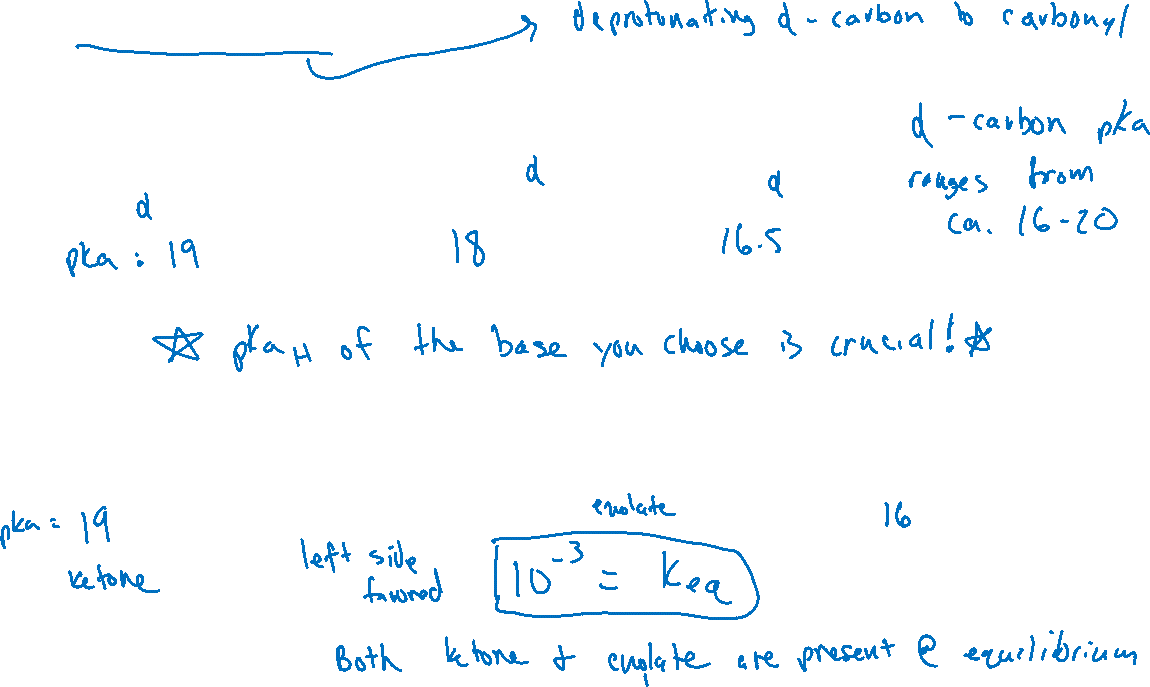 deprotonating α-carbon to carbonyl
α-carbon pka
ranges from
ca. 16-20
α
α
α
pka: 19
18
16.5
☆ pkaH of the base you choose is crucial! ☆
pka = 19
ketone
left side
favored
enolate
10⁻³ = Keq
16
Both ketone + enolate are present @ equilibrium